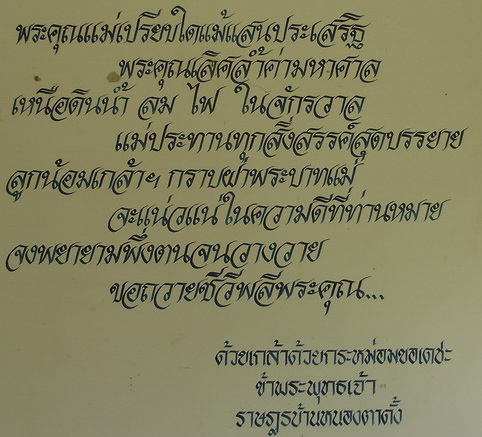 พระคุณแม่เปรียบใดแม้แสนประเสริฐ
พระคุณเลิศล้ำค่ามหาศาล
เหนือดินน้ำ ลม ไฟ ในจักรวาล
แม่ประทานทุกสิ่งสรรค์สุดบรรยาย
ลูกน้อมเกล้าฯ กราบฝ่าพระบาทแม่
จะแน่วแน่ในความดีที่ท่านหมาย
จงพยายามพึ่งตนจนวางวาย
ขอถวายชีวีพลีพระคุณ...
ด้วยเกล้าด้วยกระหม่อมขอเดชะ
ข้าพระพุทธเจ้า
ราษฎรบ้านหนองตาตั้ง